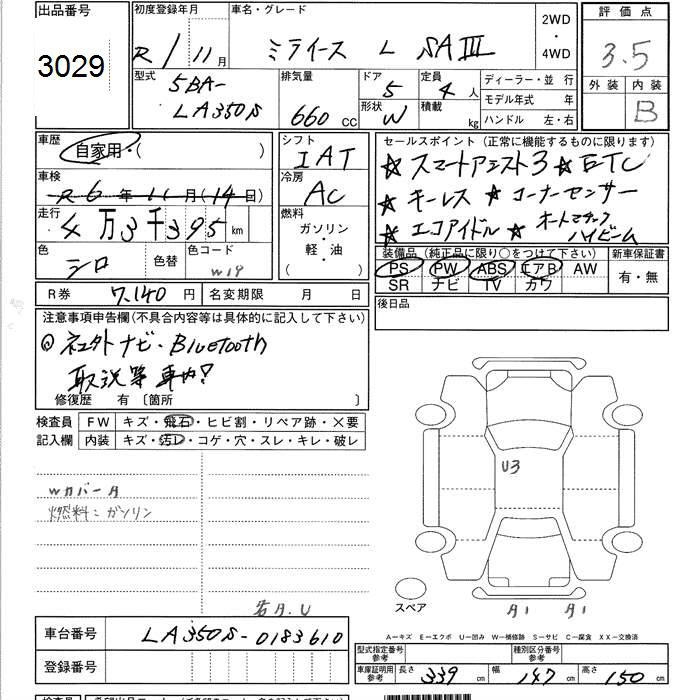 出品番号
3029
初度登録年月
R 1 11月
車名・グレード
ミライース L SAⅢ
2WD
・
4WD
評価点
3.5
外装 内装
B
型式
5BA-
LA350S
排気量
660 CC
ドア
5
形状
W
定員
4 人
積載
kg
ディーラー・並 行
モデル年式 年
ハンドル 左・右
車歴
自家用・( )
シフト
IAT
セールスポイント (正常に機能するものに限ります)
★スマートアシスト3 ★ETC
★キーレス ★コーナーセンサー
★エコアイドル ★オートマチック
ハイビーム
車検
R 6 年 11 月(14日)
冷房
AC
走行
4万3千395km
燃料
ガソリン
・
軽・油
( )
色
シロ
色替
色コード
W19
装備品 (純正品に限り○をつけて下さい)
PS PW ABS エアB AW
SR ナビ TV カワ
新車保証書
有・無
R券 7,140 円
名変期限 月 日
後日品
注意事項申告欄(不具合内容等は具体的に記入して下さい)
◎ ネコタトナビ・Bluetooth
取説等車内?
修復歴 有 〔箇所 〕
検査員
記入欄
FW キズ・飛石・ヒビ割・リペア跡・×要
内装 キズ・汚レ・コゲ・穴・スレ・キレ・破レ
Wカバー
燃料:ガソリン
U3
スペア
A1 A1
A-キズ E-エクボ U-凹み W-補修跡 S-サビ C-腐食 XX-交換済
車台番号
LA350S-0183610
登録番号
型式指定番号
参考
種別区分番号
参考
車庫証明用
参考
長さ 339 cm
幅 147 cm
高さ 150 cm